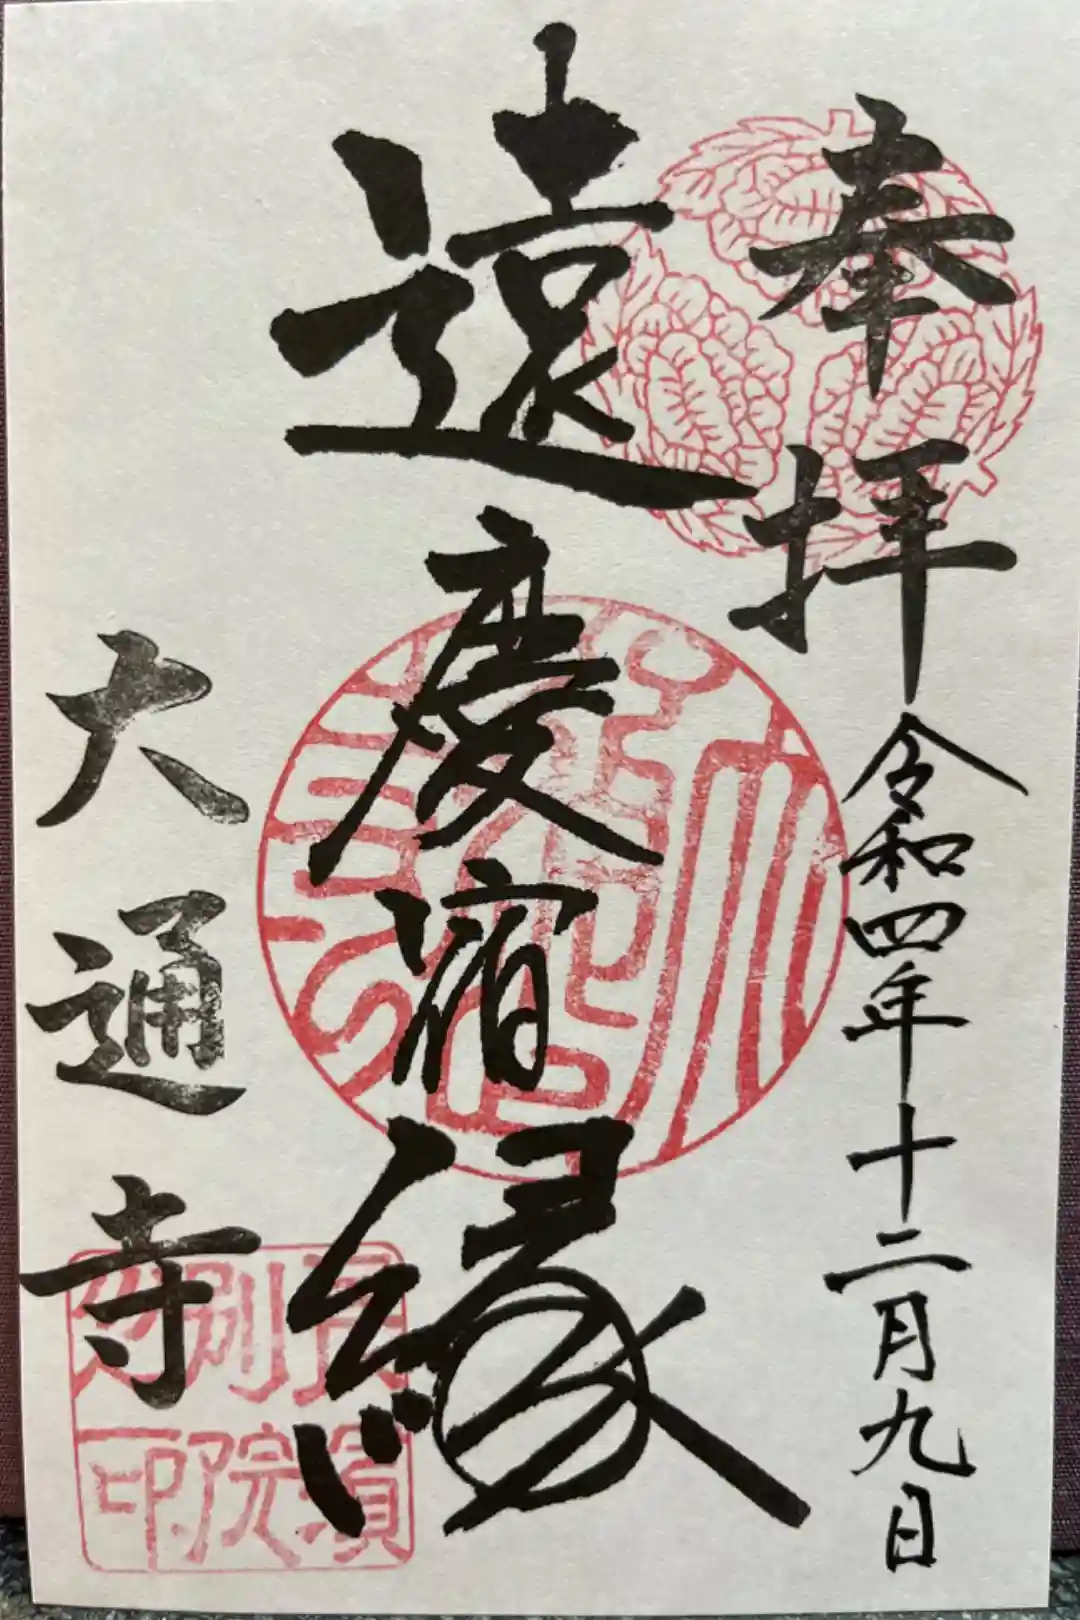 奉拝
令和四年十二月九日
遠慶宿縁
大通寺
長濱
別院